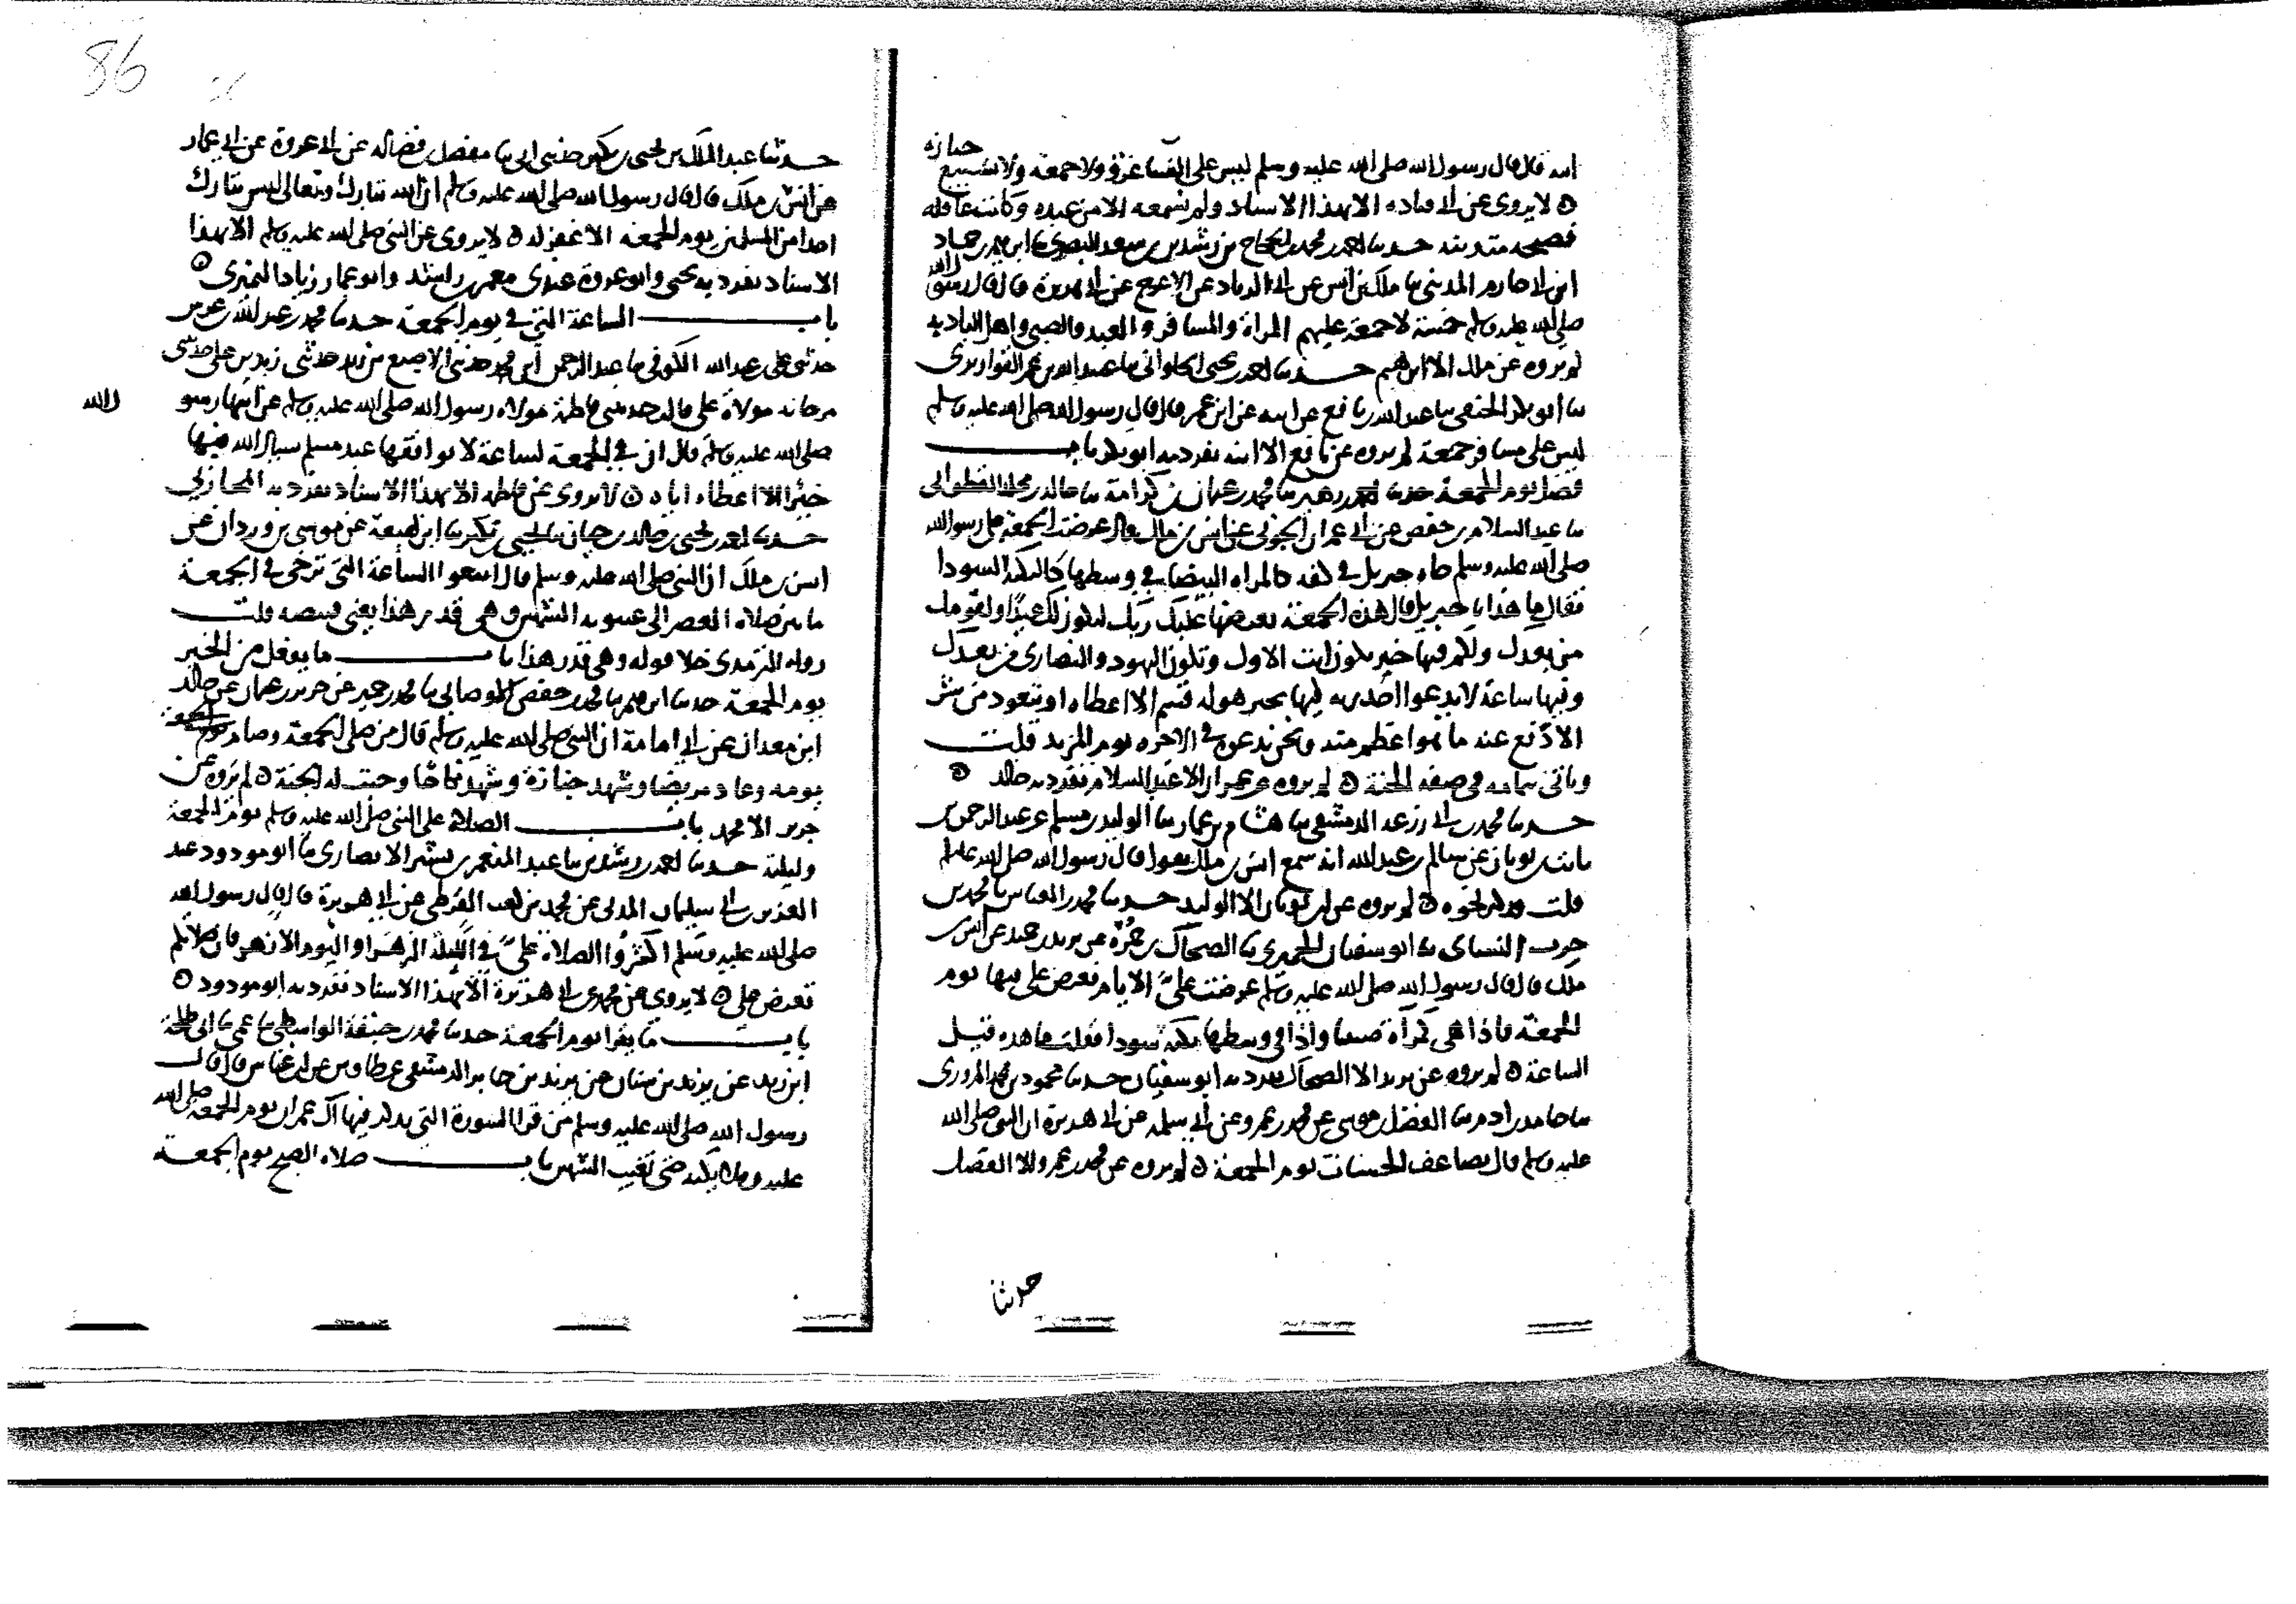 انه قال قال رسول الله صلى الله عليه وسلم ليس على النسا غزو ولا جمعة ولا تشييع جنازة
لا يروى عن ابي قتادة الا بهذا الاسناد ولم نسمعه الا من عبدة وكانت عاقلة
فصيحة متدينة حدثنا احمد بن محمد بن الحجاج بن رشدين بن سعد المصري نا ابرهيم بن حماد
ابن ابي حازم المديني نا ملك بن انس عن ابي الزناد عن الاعرج عن ابي هريرة قال قال رسول الله
صلى الله عليه وسلم خمسة لا جمعة عليهم المراة والمسافر والعبد والصبي واهل البادية
لم يروه عن ملك الا ابرهيم حدثنا احمد بن يحيى الحلواني نا عبيد الله بن عمر القواريري
نا ابو بكر الحنفي نا عبد الله بن نافع عن ابيه عن ابن عمر قال قال رسول الله صلى الله عليه وسلم
ليس على مسافر جمعة لم يروه عن نافع الا ابنه تفرد به ابو بكر باب
فضل يوم الجمعة حدثنا احمد بن زهير نا محمد بن عثمان بن كرامة نا خالد بن مخلد القطواني
نا عبد السلام بن حفص عن ابي عمران الجوني عن انس بن ملك قال عرضت الجمعة على رسول الله
صلى الله عليه وسلم جاء جبريل في كفه كالمراه البيضا في وسطها كالنكتة السودا
فقال ما هذا يا جبريل قال هذه الجمعة يعرضها عليك ربك لتكون لك عيدا ولقومك
من بعدك ولكم فيها خير تكون انت الاول وتكون اليهود والنصارى من بعدك
وفيها ساعة لا يدعوا احد ربه فيها بخير هو له قسم الا اعطاه او يتعوذ من شر
الا دفع عنه ما هو اعظم منه ونحن ندعوه في الاخرة يوم المزيد قلت
وياتي بتمامه في صفة الجنة لم يروه عن ابي عمران الا عبد السلام تفرد به خالد
حدثنا محمد بن ابي زرعة الدمشقي نا هشام بن عمار نا الوليد بن مسلم عن عبد الرحمن بن
ثابت بن ثوبان عن سالم بن عبد الله انه سمع انس بن ملك يقول قال رسول الله صلى الله عليه وسلم
قلت فذكر نحوه لم يروه عن ابن ثوبان الا الوليد حدثنا محمد بن العباس نا محمد بن
حرب النسائي نا ابو سفيان الحميري نا الضحاك بن حمرة عن يزيد بن حميد عن انس بن
ملك قال قال رسول الله صلى الله عليه وسلم عرضت علي الايام فعرض علي فيها يوم
الجمعة فاذا هي كمرآة بيضا واذا في وسطها نكتة سودا فقلت ما هذه قيل
الساعة لم يروه عن يزيد الا الضحاك تفرد به ابو سفيان حدثنا محمود بن محمد المروزي
نا حامد بن ادم نا الفضل بن موسى عن محمد بن عمرو عن ابي سلمة عن ابي هريرة ان النبي صلى الله
عليه وسلم قال تضاعف الحسنات يوم الجمعة لم يروه عن محمد بن عمرو الا الفضل
حدثنا
86
حدثنا عبد الملك بن يحيى بن بكير حدثني ابي نا مفضل بن فضالة عن ابي عروة عن ابي عمار
عن انس بن ملك قال قال رسول الله صلى الله عليه وسلم ان الله تبارك وتعالى ليس بتارك
احدا من المسلمين يوم الجمعة الا غفر له لا يروى عن النبي صلى الله عليه وسلم الا بهذا
الاسناد تفرد به يحيى وابو عروة عندي معمر بن راشد وابو عمار زياد النميري
باب الساعة التي في يوم الجمعة حدثنا محمد بن عبد الله بن عرس
حدثني علي بن عبد الله الكوفي نا عبد الرحمن ابن محمد حدثني الاصبع بن زيد حدثني زيد بن علي حدثتني
مرجانة مولاة علي قالت حدثتني فاطمة مولاة رسول الله صلى الله عليه وسلم عن ابيها رسول الله
صلى الله عليه وسلم قال ان في الجمعة لساعة لا يوافقها عبد مسلم يسال الله فيها
خيرا الا اعطاه اياه لا يروى عن فاطمة الا بهذا الاسناد تفرد به المحاربي
حدثنا احمد بن يحيى بن خالد بن حيان نا يحيى بن بكير نا ابن لهيعة عن موسى بن وردان عن
انس بن ملك ان النبي صلى الله عليه وسلم قال ابتغوا الساعة التي ترجى في الجمعة
ما بين صلاة العصر الى غيبوبة الشمس وهي قدر هذا يعني قبضة قلت
رواه الترمذي خلا قوله وهي قدر هذا باب ما يفعل من الخير
يوم الجمعة حدثنا ابرهيم نا محمد بن حفص الاوصابي نا محمد بن حمير عن حريز بن عثمان عن خالد
ابن معدان عن ابي امامة ان النبي صلى الله عليه وسلم قال من صلى الجمعة وصام
يومه وعاد مريضا وشهد جنازة وشهد نكاحا وجبت له الجنة لم يروه عن
حريز الا محمد باب الصلاة على النبي صلى الله عليه وسلم يوم الجمعة
وليلته حدثنا احمد بن رشدين نا عبد المنعم بن بشير الانصاري نا ابو مودود عبد
العزيز بن ابي سليمان المدني عن محمد بن كعب القرظي عن ابي هريرة قال قال رسول الله
صلى الله عليه وسلم اكثروا الصلاة علي في الليلة الزهرا واليوم الازهر فان صلاتكم
تعرض علي لا يروى عن محمد عن ابي هريرة الا بهذا الاسناد تفرد به ابو مودود
باب ما يقرا يوم الجمعة حدثنا محمد بن حنيفة الواسطي نا عمي نا ابي نا طلحة
ابن زيد عن يزيد بن سنان عن يزيد بن جابر الدمشقي عن طاوس عن ابن عباس قال قال
رسول الله صلى الله عليه وسلم من قرا السورة التي يذكر فيها آل عمران يوم الجمعة صلى الله
عليه وملائكته حتى تغيب الشمس باب صلاة الصبح يوم الجمعة